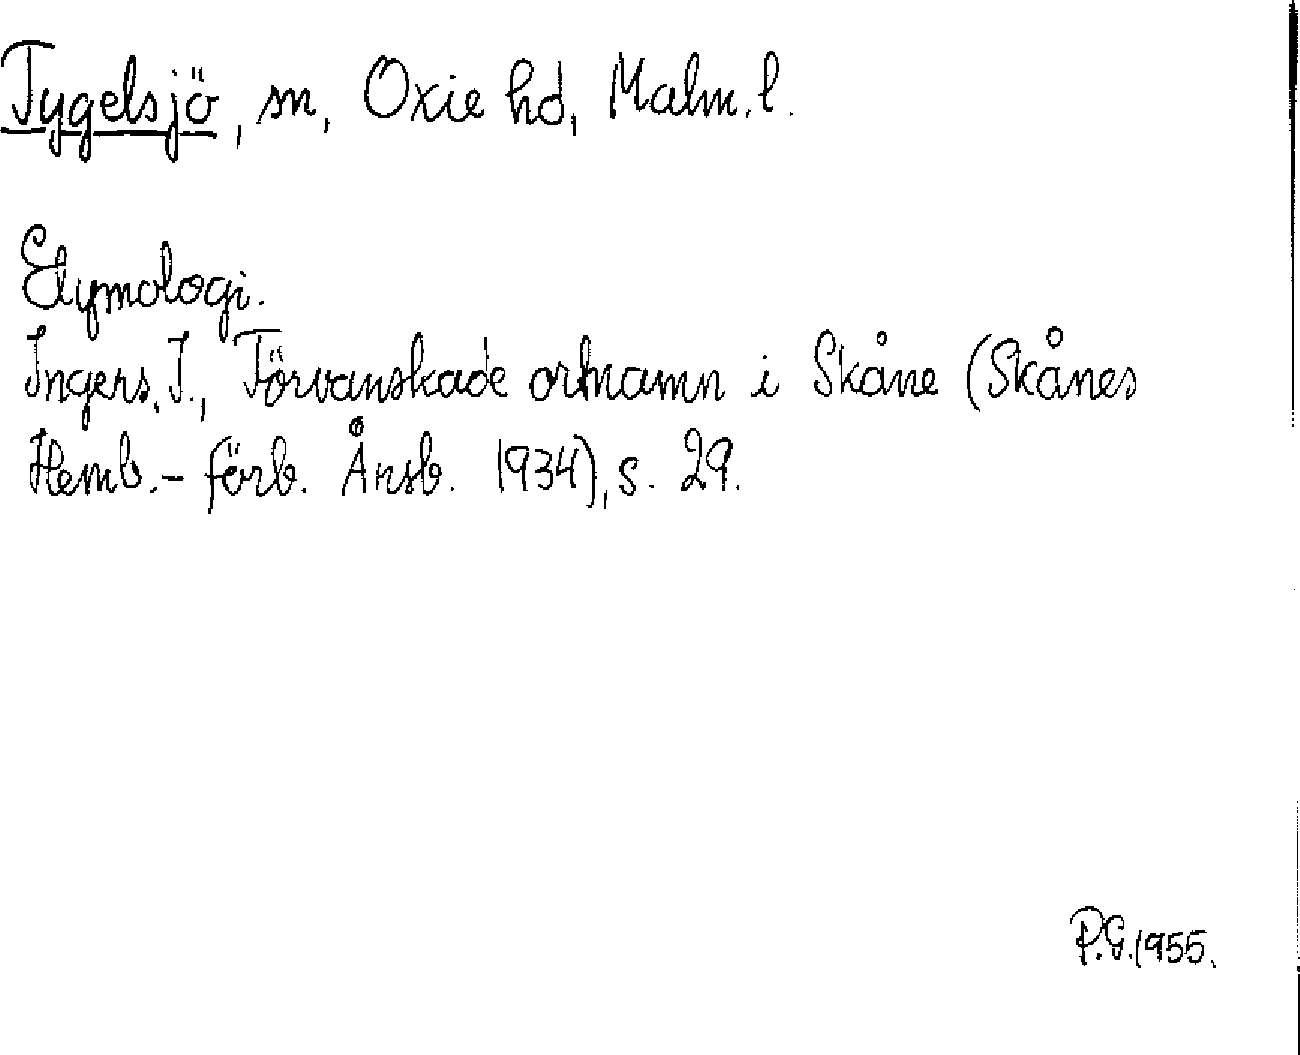 Tygelsjö, sn, Oxie hd, Malm. l.
Etymologi.
Ingers, I., Förvanskade ortnamn i Skåne (Skånes
Hemb.-förb. Årsb. 1934), s. 29.
P.G. 1955.